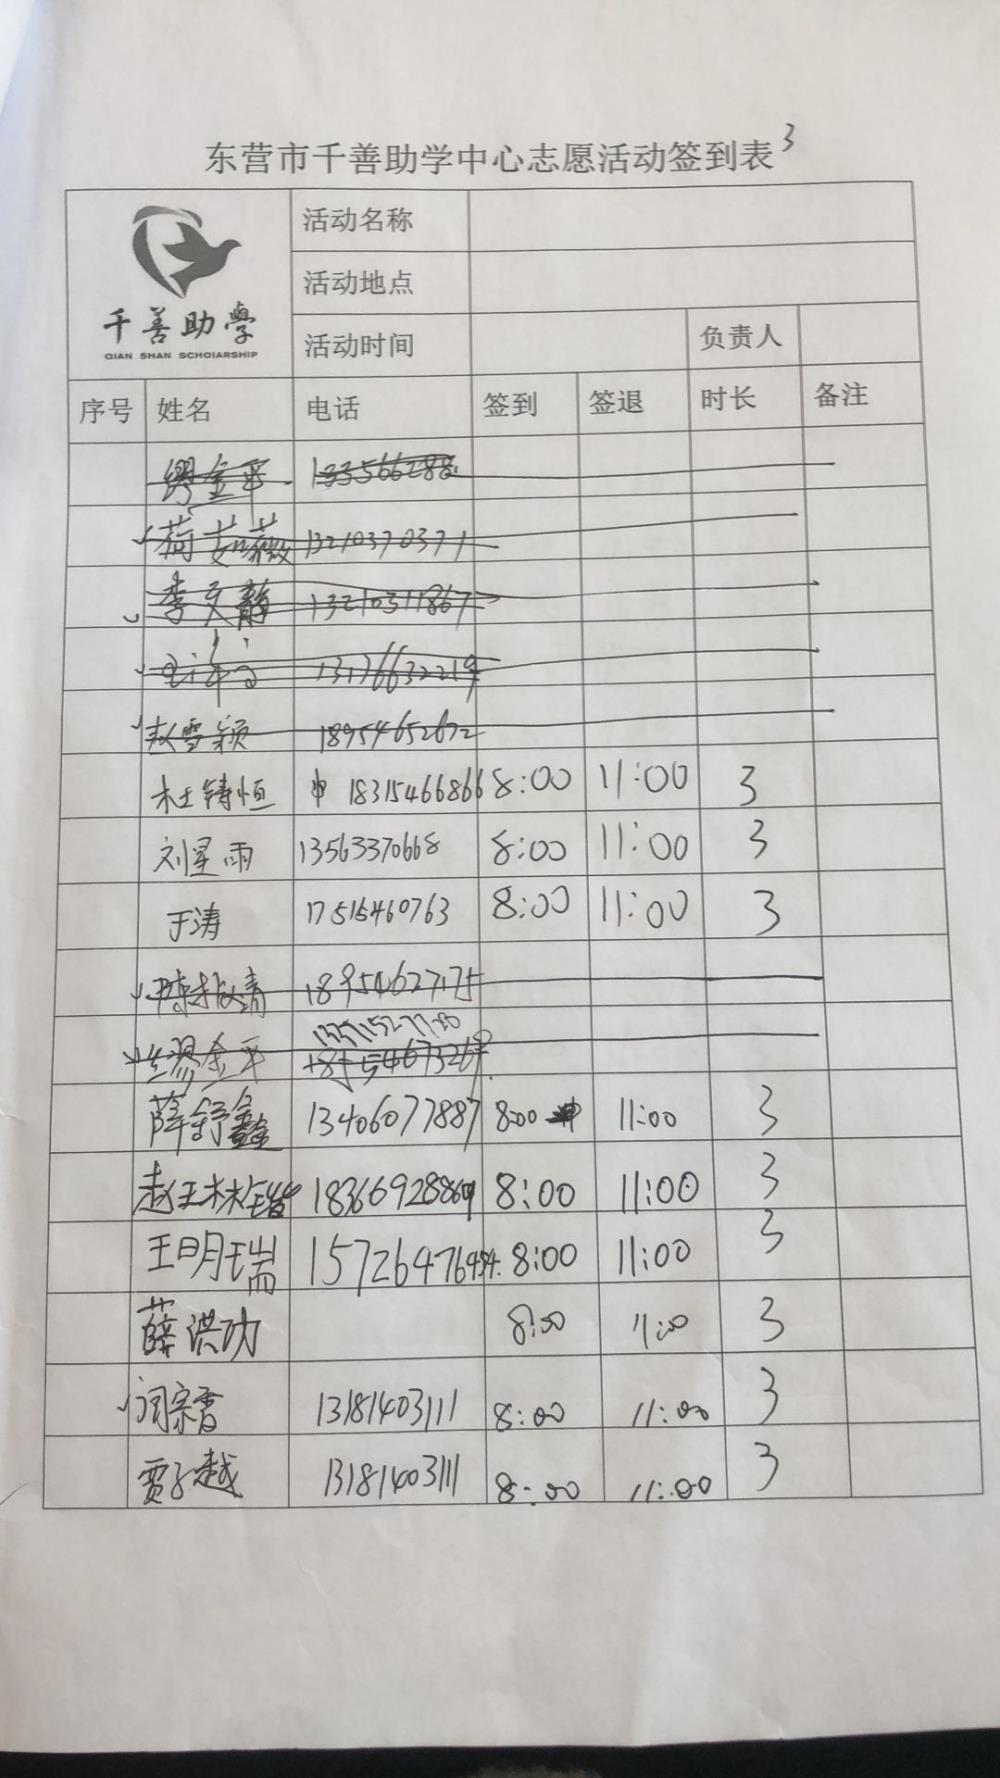 东营市千善助学中心志愿活动签到表 3
千善助学
QIAN SHAN SCHOLARSHIP
活动名称
活动地点
活动时间 负责人
序号 姓名 电话 签到 签退 时长 备注
缪金平 1335566288
荷茹薇 13210370371
李文静 13210311867
13176632219
赵雪颖 18954652672
杜铸恒 18315466866 8:00 11:00 3
刘星雨 13563370668 8:00 11:00 3
于涛 17515460763 8:00 11:00 3
18954627175
金平
薛舒鑫 13406077887 8:00 11:00 3
赵王林锴 18366928869 8:00 11:00 3
王明瑞 15726476484 8:00 11:00 3
薛洪功 8:00 11:00 3
闫宗香 13181403111 8:00 11:00 3
贾子越 13181403111 8:00 11:00 3